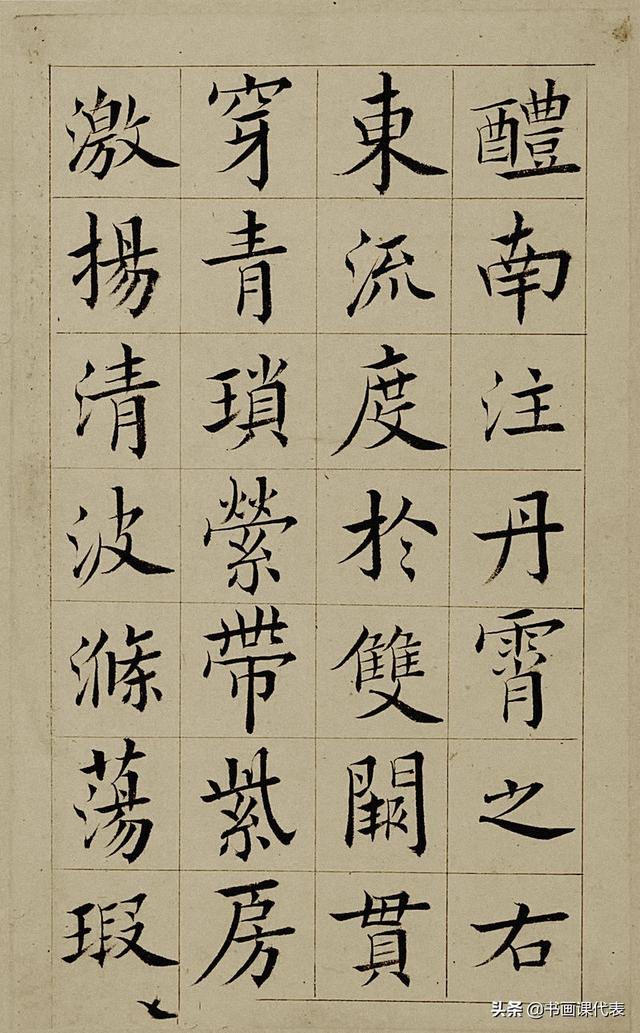 醴南注丹霄之右
東流度於雙闕貫
穿青瑣縈帶紫房
激揚清波滌蕩瑕
头条 @书画课代表